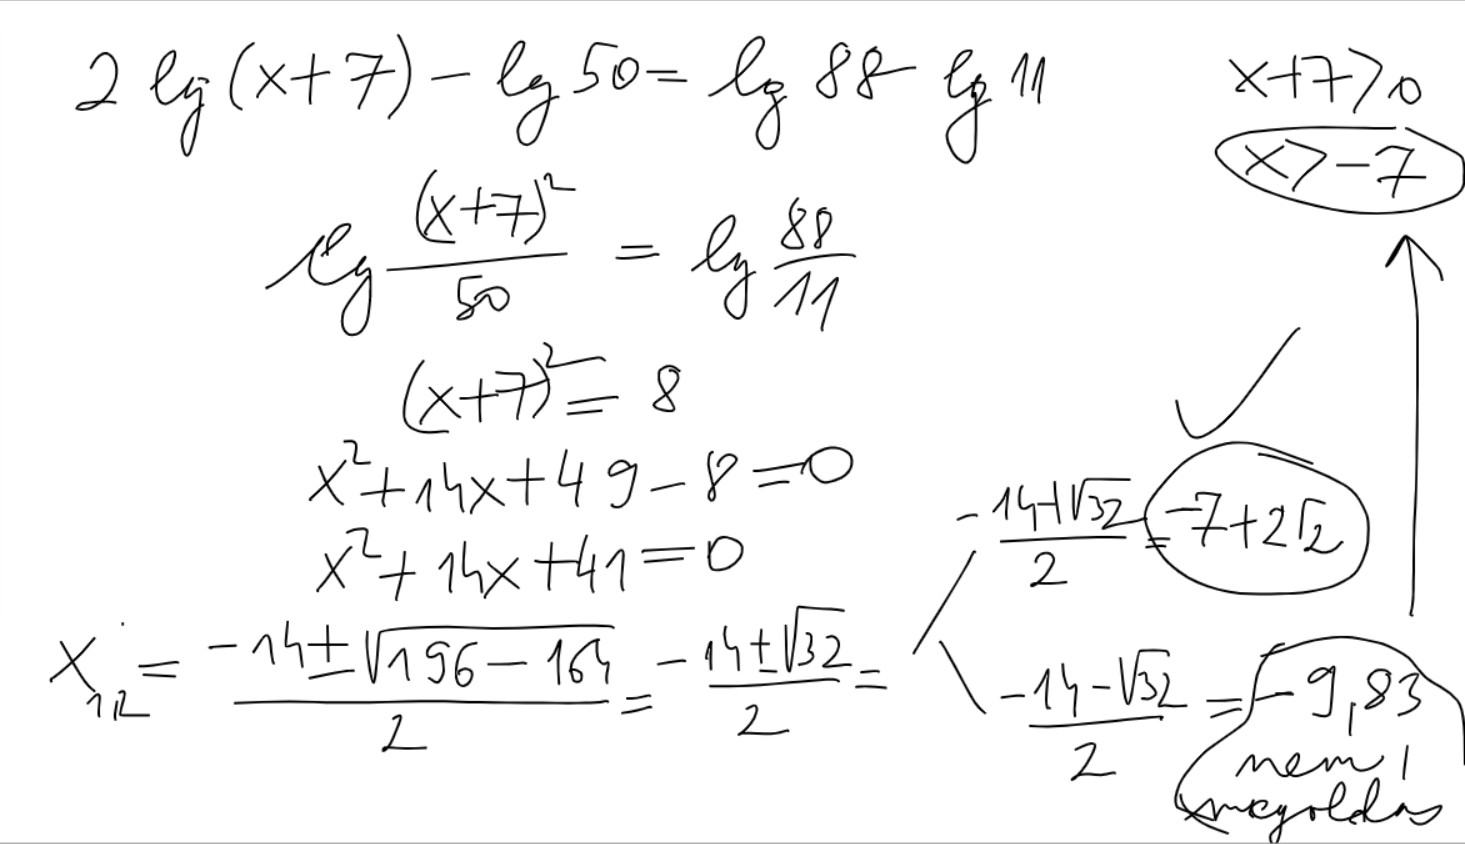 2 lg (x+7) - lg 50 = lg 88 - lg 11
x+7>0
x>-7
lg (x+7)²/50 = lg 88/11
(x+7)² = 8
x²+14x+49-8=0
x²+14x+41=0
x₁,₂ = (-14±√(196-164))/2 = (-14±√32)/2 =
(-14+√32)/2 = -7+2√2
(-14-√32)/2 = -9,83
nem
megoldás